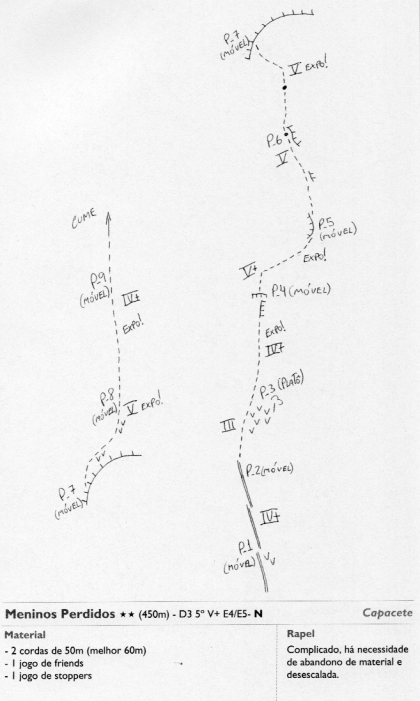 P_7
(MÓVEL)
V EXPO!
P_6
V
P_5
(MÓVEL)
EXPO!
V+
P_4 (MÓVEL)
EXPO!
IV+
P_3 (PLATÔ)
III
P_2 (MÓVEL)
IV+
P_1
(MÓVEL)
CUME
P_9
(MÓVEL)
IV+
EXPO!
P_8
(MÓVEL)
V EXPO!
P_7
(MÓVEL)
Meninos Perdidos ★★ (450m) - D3 5° V+ E4/E5- N
Capacete
Material
- 2 cordas de 50m (melhor 60m)
- 1 jogo de friends
- 1 jogo de stoppers
Rapel
Complicado, há necessidade
de abandono de material e
desescalada.